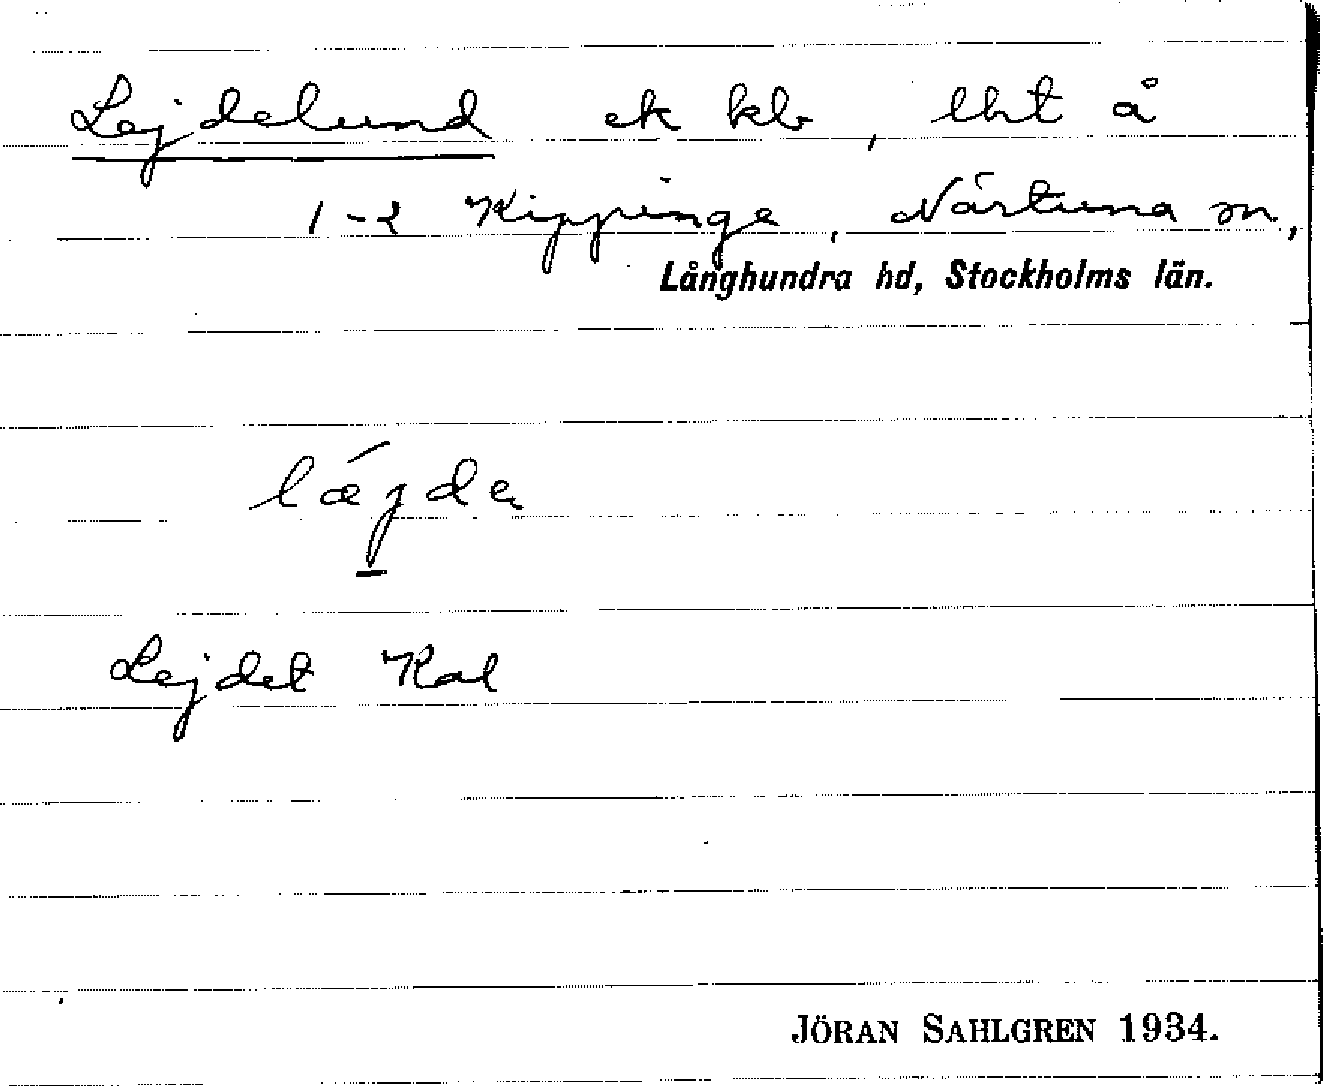 Lejdelund ek kb, lht å
1-2 Kippinge, Närtuna sn,
Långhundra hd, Stockholms län.
lǽjda
Lejdet Kal
JÖRAN SAHLGREN 1934.